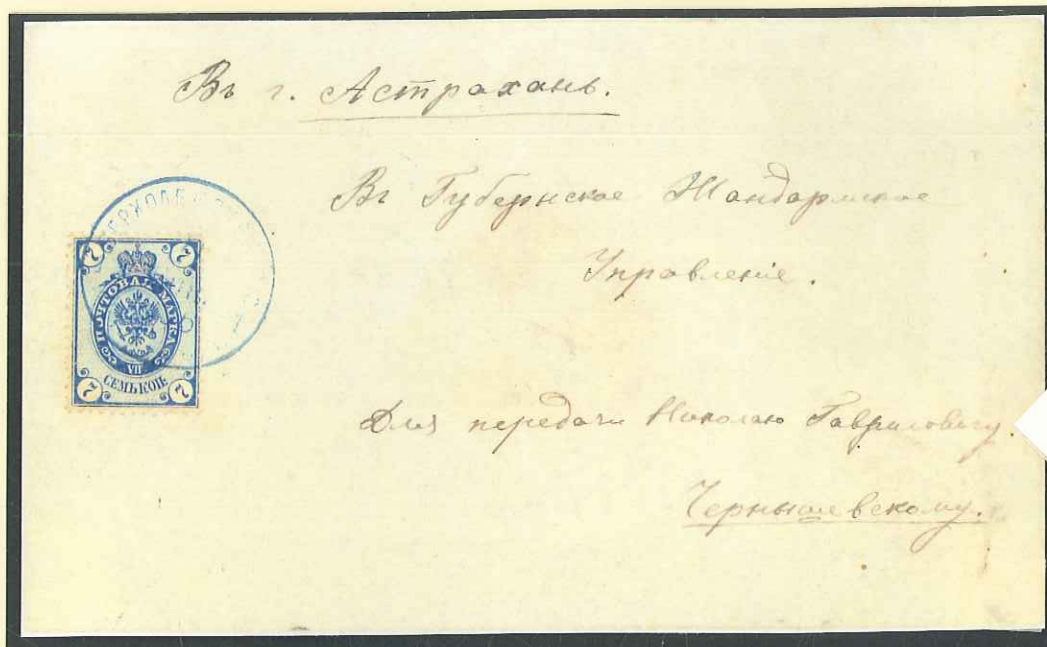 Въ г. Астрахань.
Въ Губернское Жандармское
Управленіе.
Для передачи Николаю Гавриловичу
Чернышевскому.
7 7
ПОЧТОВАЯ МАРКА
VII
СЕМЬ КОП.
7 7